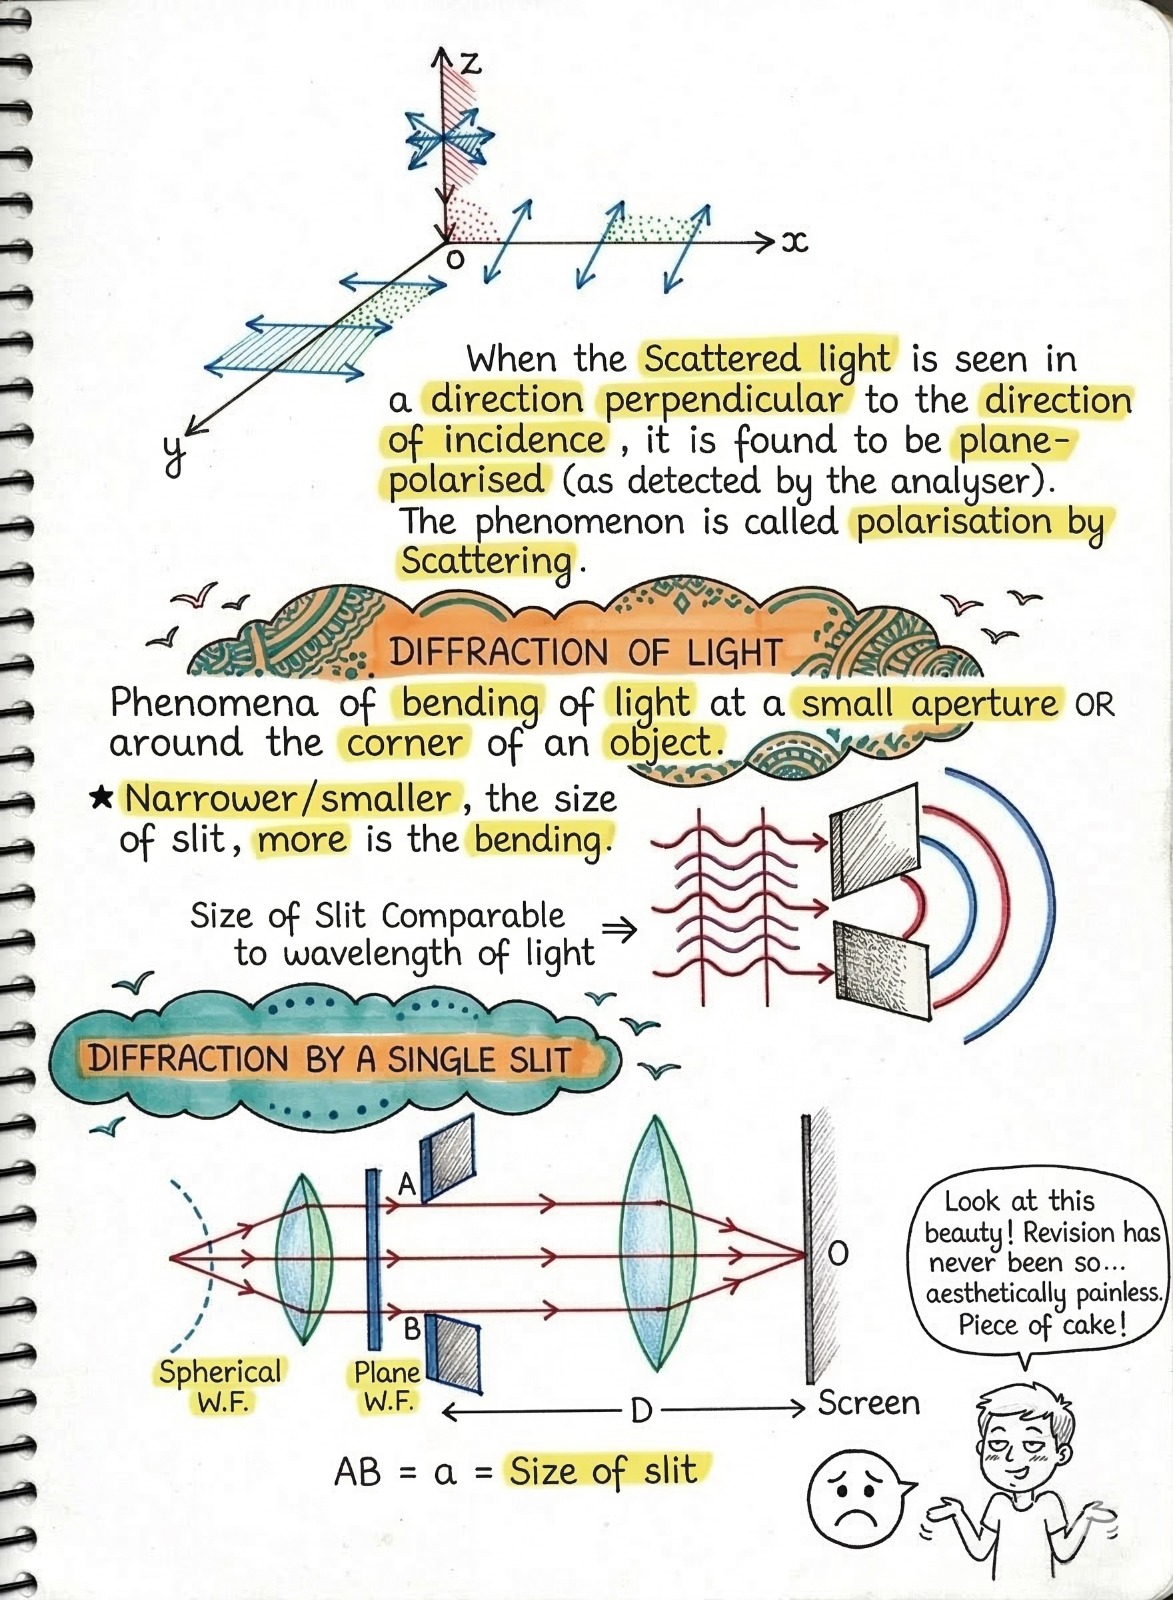 z
x
o
y
When the Scattered light is seen in
a direction perpendicular to the direction
of incidence, it is found to be plane-
polarised (as detected by the analyser).
The phenomenon is called polarisation by
Scattering.
DIFFRACTION OF LIGHT
Phenomena of bending of light at a small aperture OR
around the corner of an object.
★ Narrower/smaller, the size
of slit, more is the bending.
Size of Slit Comparable ⇒
to wavelength of light
DIFFRACTION BY A SINGLE SLIT
A
O
B
Spherical
W.F.
Plane
W.F.
D
Screen
AB = a = Size of slit
Look at this
beauty! Revision has
never been so...
aesthetically painless.
Piece of cake!